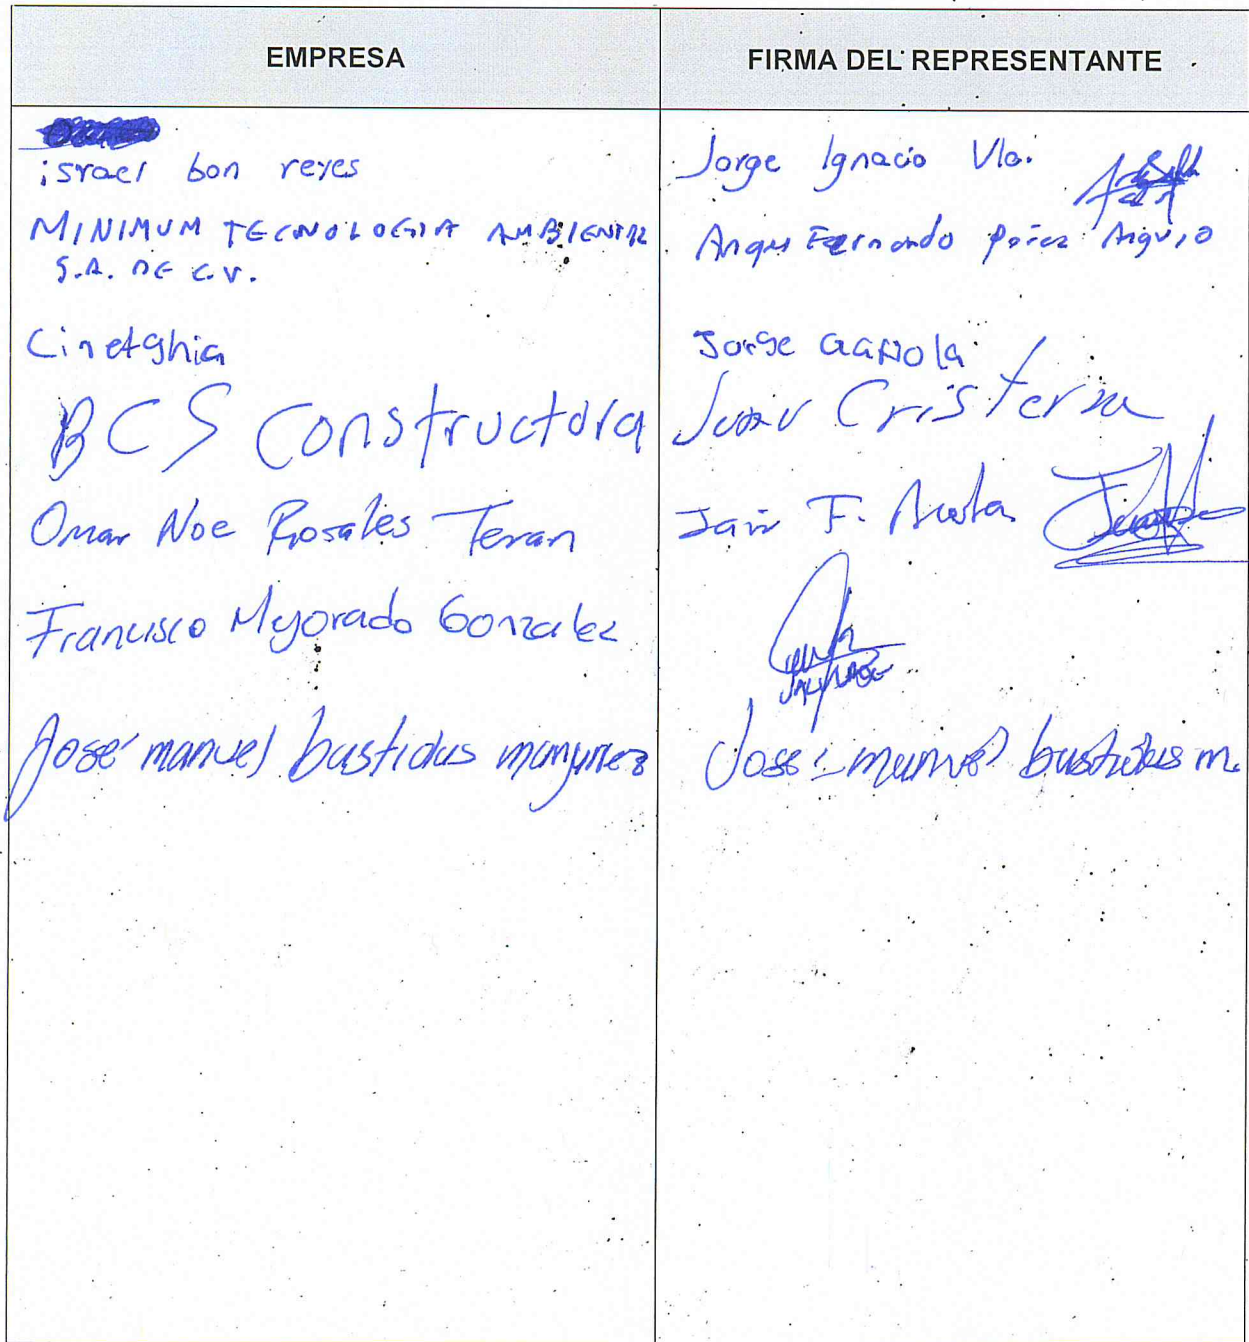 EMPRESA FIRMA DEL REPRESENTANTE
israel bon reyes Jorge Ignacio
MINIMUM TECNOLOGIA AMBIENTAL Fernando
S.A. DE C.V.
Cinetghia Jorge
BCS Constructora Cristerna
Omar Noe Rosales Teran Jair F. Acosta
Francisco Mejorado Gonzalez
José manuel bastidas José manuel bastidas m.